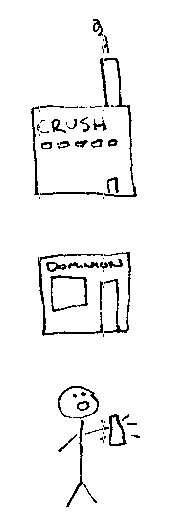 CRUSH
DOMINION